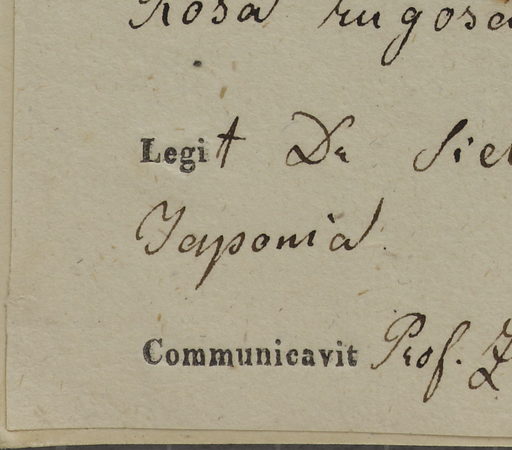 Rosa rugosa
Legit Dr Sie
Japonia
Communicavit Prof. Z